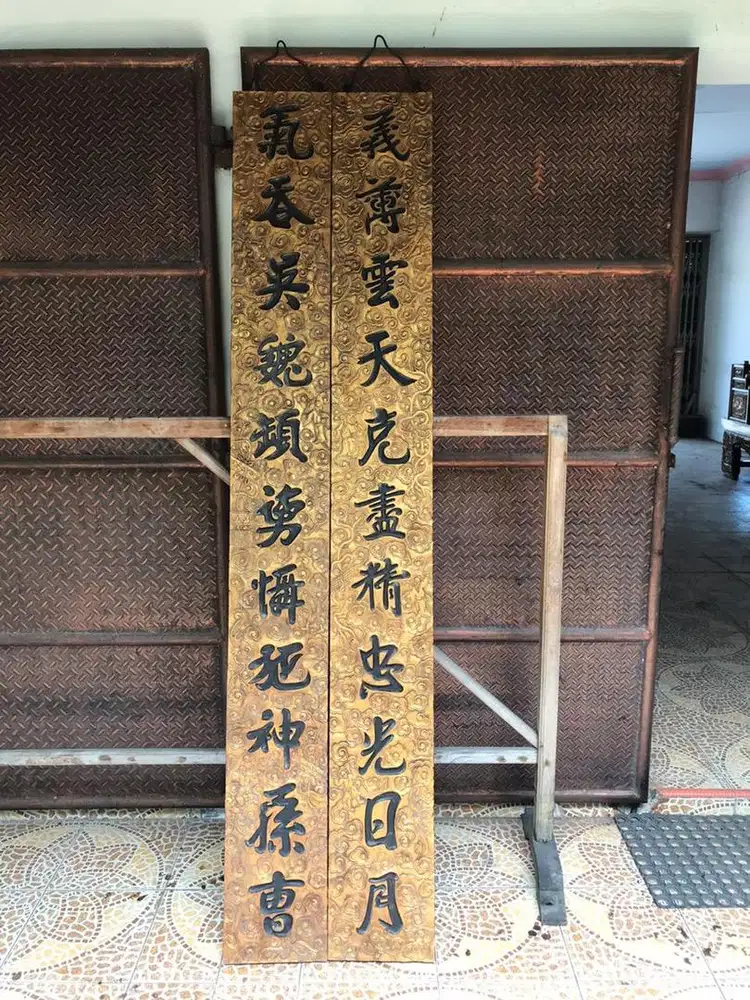 義薄雲天克盡精忠光日月
氣吞吳魏頓懾神孫曹